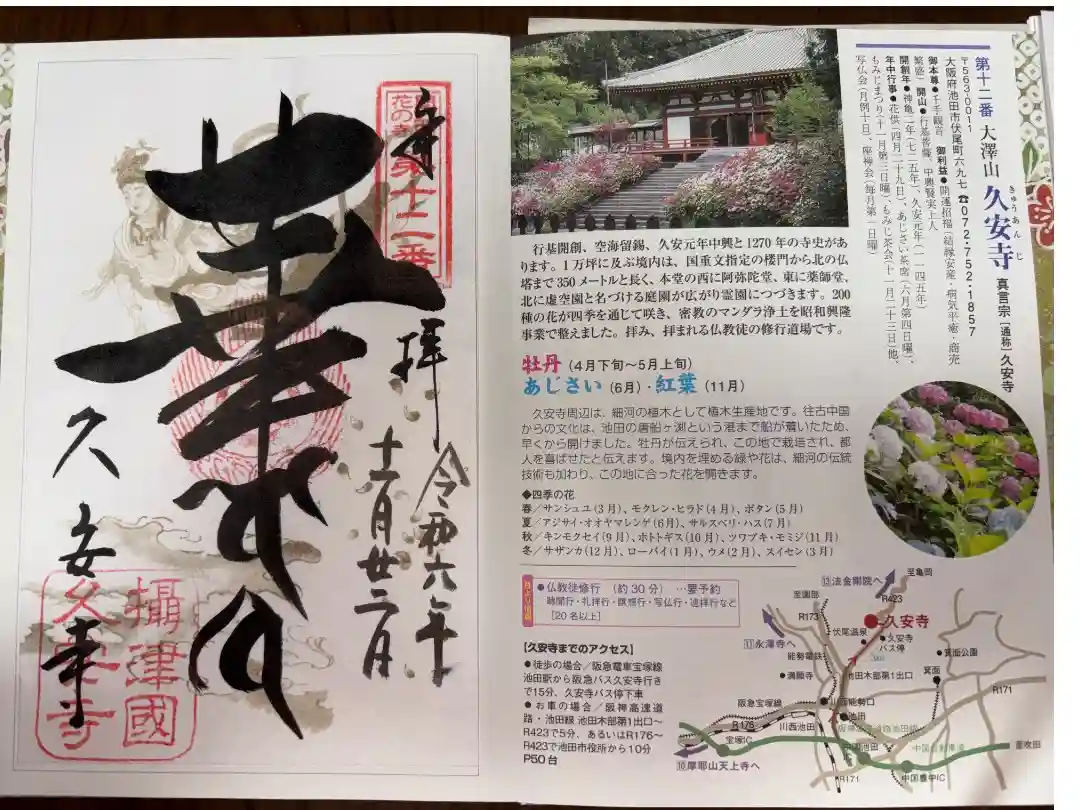 奉
拝
令和六年
十一月廿二日
久安寺
花の
第十二番
攝津國
久安寺
第十二番 大澤山 久安寺 真言宗〔通称〕久安寺
きゅうあんじ
〒563-0011
大阪府池田市伏尾町六九七 ☎072・752・1857
御本尊●千手観音 御利益●開運招福(結縁安産・病気平癒・商売
繁盛) 開山●行基菩薩、中興賢実上人
開創年●神亀二年(七二五年)、久安元年(一一四五年)
年中行事●花供(四月二十九日)、あじさい茶席(六月第四日曜)、
もみじまつり(十一月第三日曜)、もみじ茶会(十一月二十三日)他、
写仏会(月例十日)、座禅会(毎月第一日曜)
行基開創、空海留錫、久安元年中興と1270年の寺史があ
ります。1万坪に及ぶ境内は、国重文指定の楼門から北の仏
塔まで350メートルと長く、本堂の西に阿弥陀堂、東に薬師堂、
北に虚空園と名づける庭園が広がり霊園につづきます。200
種の花が四季を通じて咲き、密教のマンダラ浄土を昭和興隆
事業で整えました。拝み、拝まれる仏教徒の修行道場です。
牡丹(4月下旬〜5月上旬)
あじさい(6月)・紅葉(11月)
久安寺周辺は、細河の植木として植木生産地です。往古中国
からの文化は、池田の唐船ヶ渕という港まで船が着いたため、
早くから開けました。牡丹が伝えられ、この地で栽培され、都
人を喜ばせたと伝えます。境内を埋める緑や花は、細河の伝統
技術も加わり、この地に合った花を開きます。
◆四季の花
春/サンシュユ(3月)、モクレン・ヒラド(4月)、ボタン(5月)
夏/アジサイ・オオヤマレンゲ(6月)、サルスベリ・ハス(7月)
秋/キンモクセイ(9月)、ホトトギス(10月)、ツワブキ・モミジ(11月)
冬/サザンカ(12月)、ローバイ(1月)、ウメ(2月)、スイセン(3月)
●仏教徒修行 (約30分) …要予約
聴聞行・礼拝行・瞑想行・写仏行・遶拝行など
[20名以上]
【久安寺までのアクセス】
●徒歩の場合/阪急電車宝塚線
池田駅から阪急バス久安寺行き
で15分、久安寺バス停下車
●お車の場合/阪神高速道
路・池田線 池田木部第1出口〜
R423で5分、あるいはR176〜
R423で池田市役所から10分
P50台
⑬法金剛院へ
至亀岡
R423
至園部
R173
久安寺
伏尾温泉
久安寺
バス停
⑪永澤寺へ
能勢電鉄
満願寺
池田木部第1出口
箕面
箕面公園
R171
阪急宝塚線
川西能勢口
池田
R176
川西池田
宝塚IC
中国池田
中国自動車道
至吹田
⑩摩耶山天上寺へ
R171
中国豊中IC